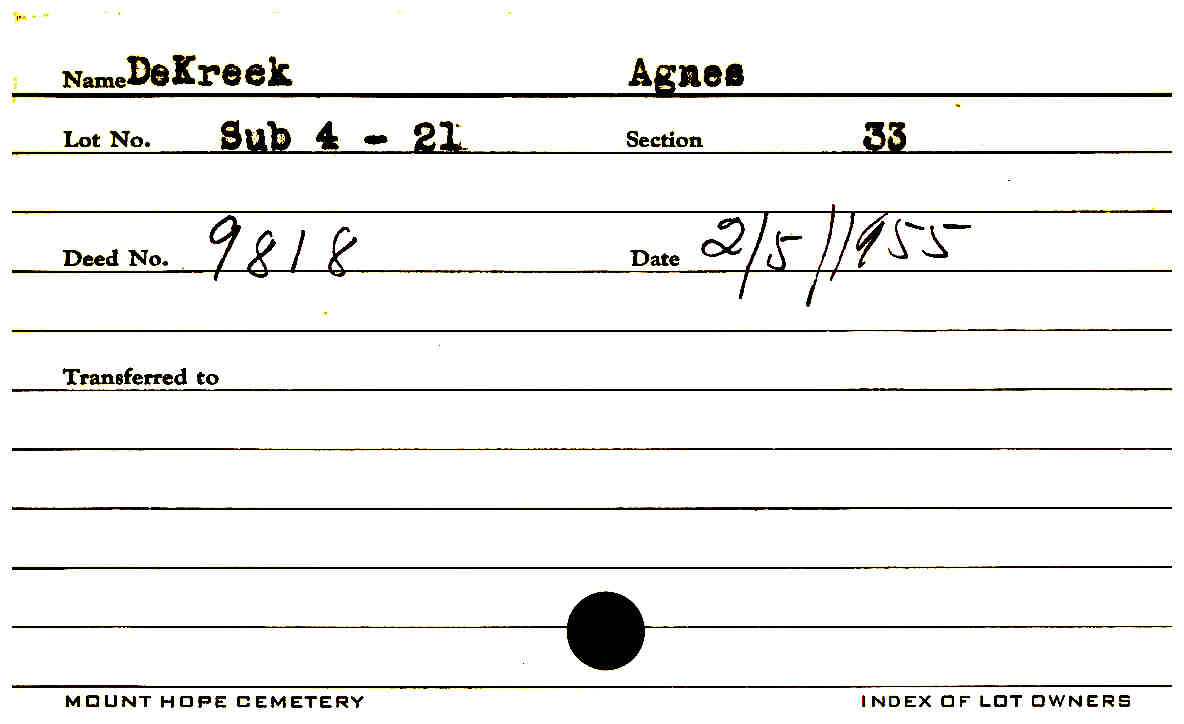 Name DeKreek Agnes
Lot No. Sub 4 - 21 Section 33
Deed No. 9818 Date 2/5/1955
Transferred to
MOUNT HOPE CEMETERY INDEX OF LOT OWNERS